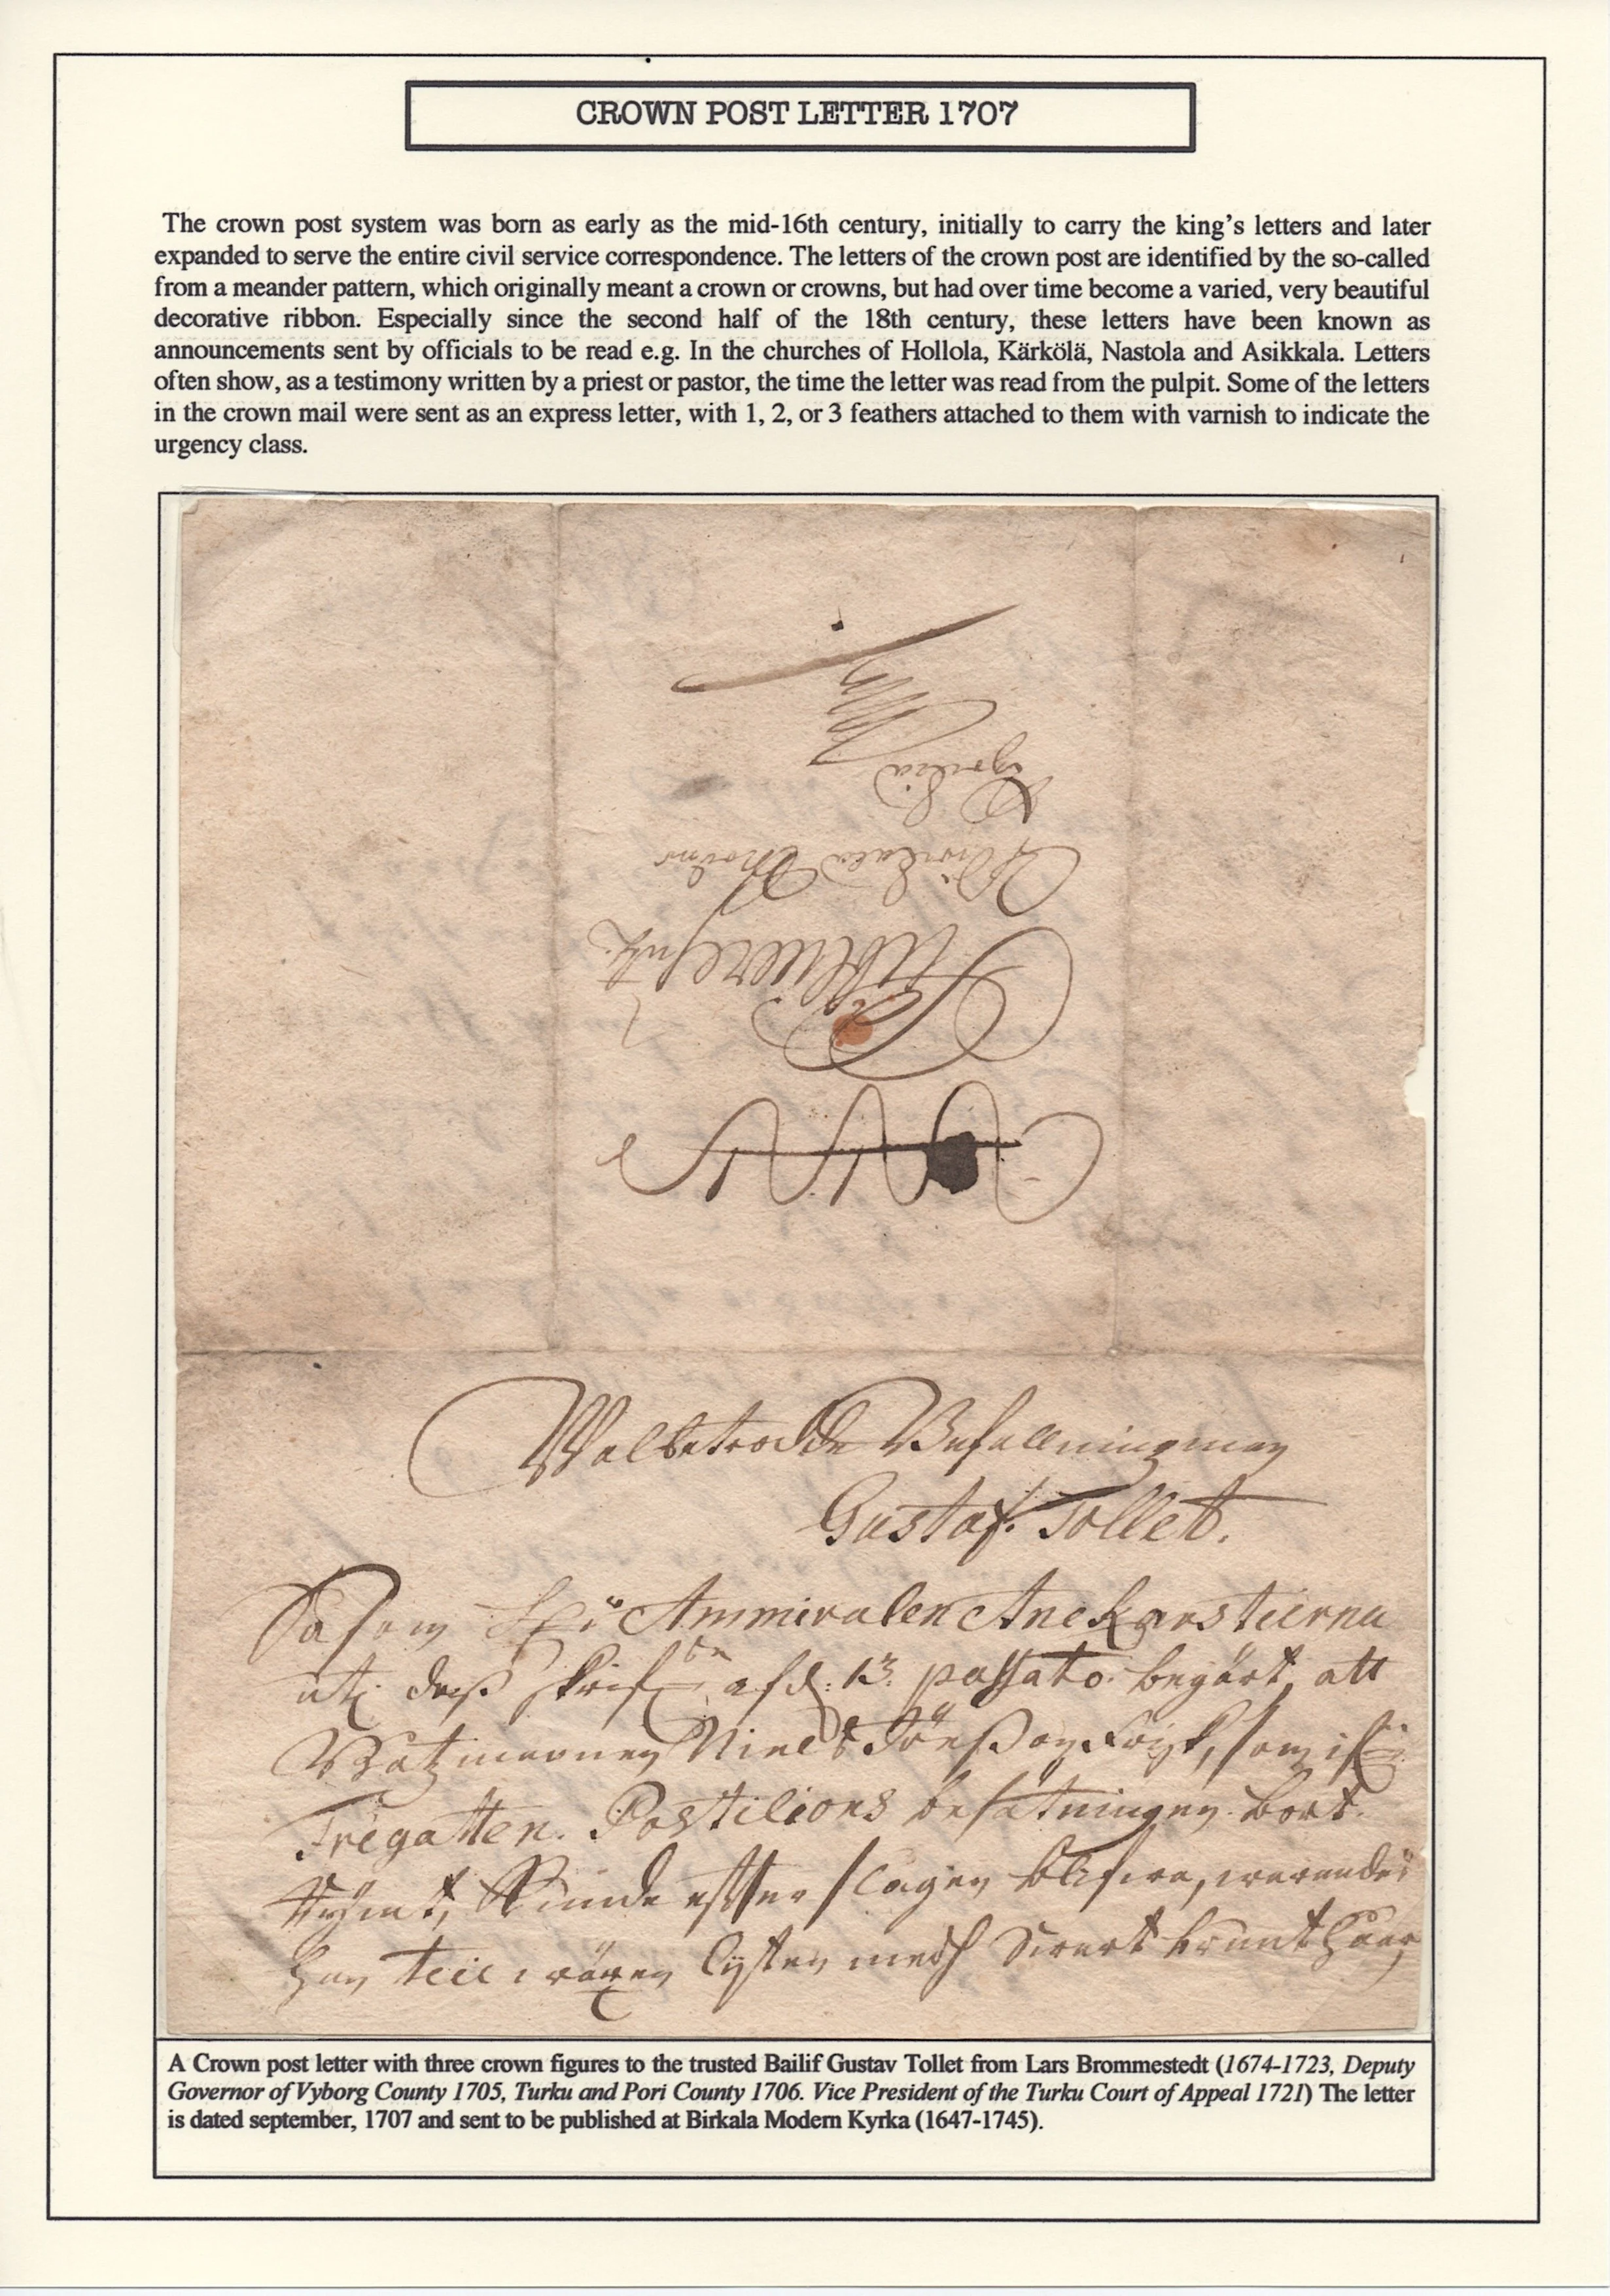 CROWN POST LETTER 1707
The crown post system was born as early as the mid-16th century, initially to carry the king's letters and later
expanded to serve the entire civil service correspondence. The letters of the crown post are identified by the so-called
from a meander pattern, which originally meant a crown or crowns, but had over time become a varied, very beautiful
decorative ribbon. Especially since the second half of the 18th century, these letters have been known as
announcements sent by officials to be read e.g. In the churches of Hollola, Kärkölä, Nastola and Asikkala. Letters
often show, as a testimony written by a priest or pastor, the time the letter was read from the pulpit. Some of the letters
in the crown mail were sent as an express letter, with 1, 2, or 3 feathers attached to them with varnish to indicate the
urgency class.
Publiceres
Birkala Moder
Kyrkia
Walbetrodde Befallningzman
Gustaf Tollet.
Såsom Ammiralen Anckarstierna
dess afd: 13 passato begärt, att
Båtzmannen Niels som
Fregatten Postilions besätningen bort
rymt, kunde efterslagen blifwa, warandes
han till wäxten lijten medh Swart brunt håår
A Crown post letter with three crown figures to the trusted Bailif Gustav Tollet from Lars Brommestedt (1674-1723, Deputy
Governor of Vyborg County 1705, Turku and Pori County 1706. Vice President of the Turku Court of Appeal 1721) The letter
is dated september, 1707 and sent to be published at Birkala Modern Kyrka (1647-1745).